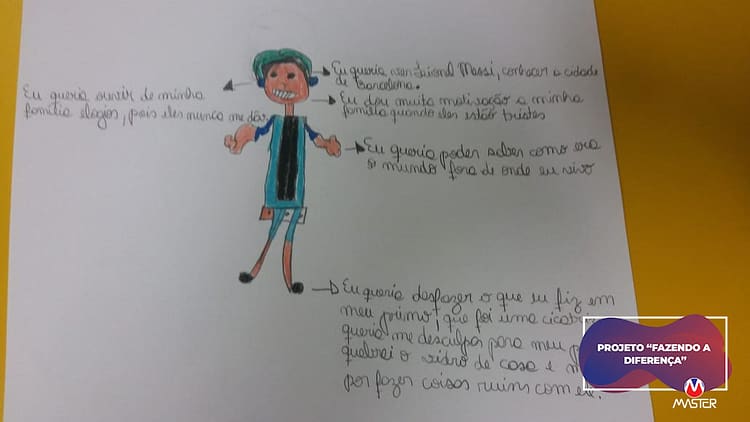 Eu queria ouvir de minha
família elogios, pois eles nunca me dão
Eu queria ver Leional Messi, conhecer a cidade
de Barcelona.
Eu dou muita motivação a minha
família quando eles estão tristes
Eu queria poder saber como era
o mundo fora de onde eu vivo
Eu queria desfazer o que eu fiz em
meu primo, que foi uma
queria me desculpas para meu
quebrei o vidro de casa e
por fazer coisas ruins com ele.
PROJETO “FAZENDO A
DIFERENÇA”
MASTER